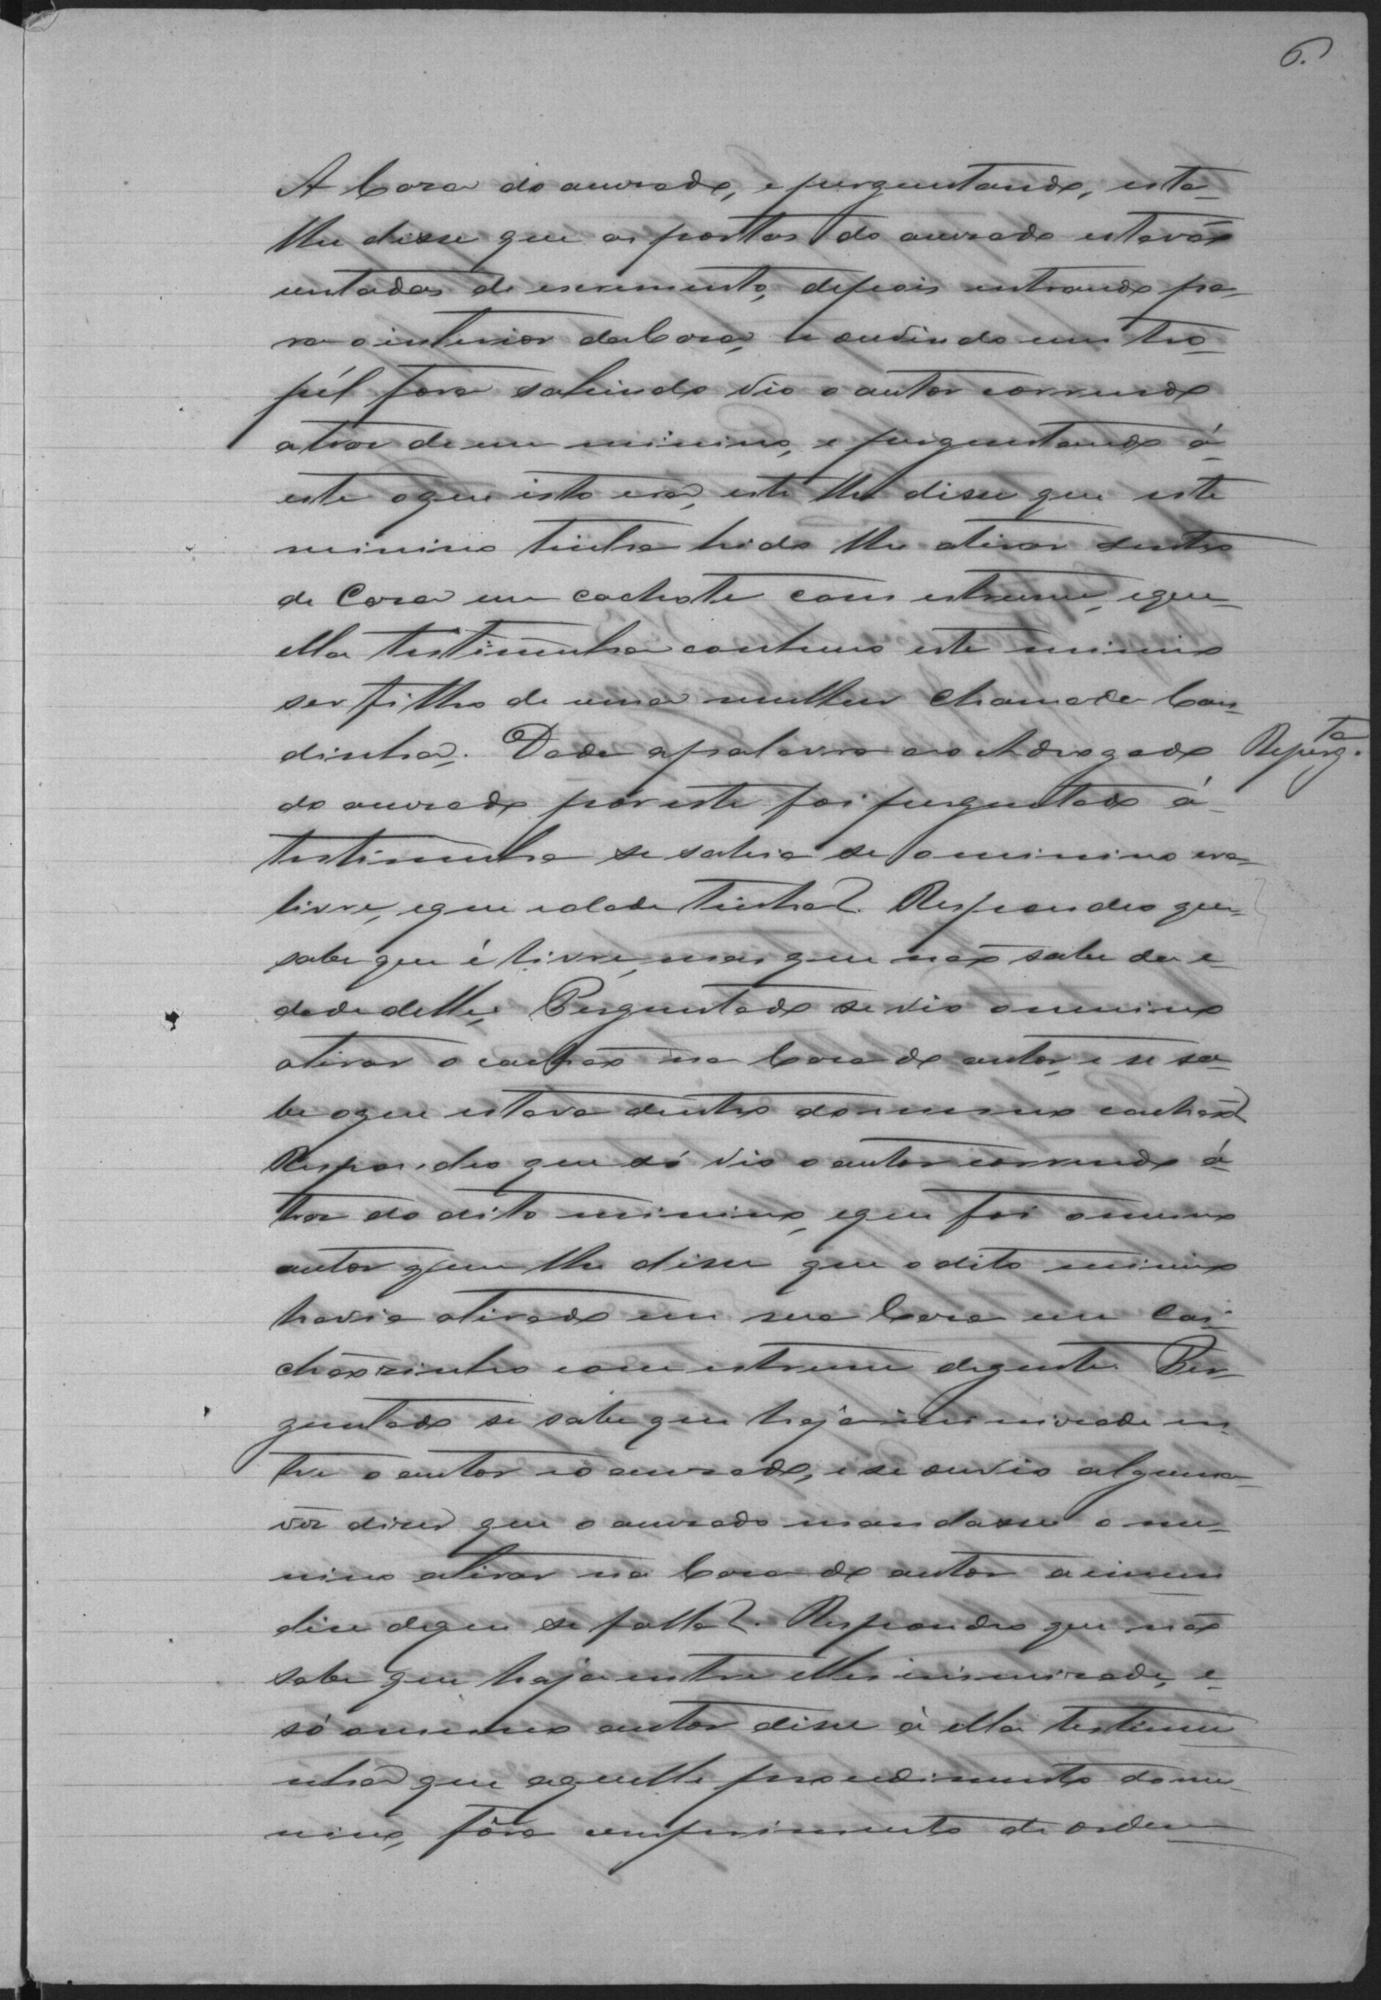 6.
A Casa do accusado, e perguntando, esta
lhe disse que as portas do accusado estavão
untadas de excremento, depois entrando pa-
ra o interior da Casa, e ouvindo um tro-
pél fora sahindo vio o autor correndo
atras de um minino, e perguntando á
este o que isto era, este lhe disse que este
minino tinha hido lhe atirar dentro
de Casa um cachote com estrume, e que
ella testimunha conheceo este minino
ser filho de uma mulher chamada Can-
dinha. Dada a palavra ao Advogado
Reperg.ta
do accusado por este foi perguntado á
testimunha se sabia se o minino era
livre, e que idade tinha? Respondeo que
sabe que é livre, mas que não sabe da e-
dade delle. Perguntado se vio o minino
atirar o caixão na Casa do autor, e se sa-
be o que estava dentro do mesmo caixão?
Respondeo que só vio o autor correndo á-
traz do dito minino, e que foi o mesmo
autor quem lhe disse que o dito minino
havia atirado em sua Casa um Cai-
chãozinho com estrume de gente. Per-
guntado se sabe que haja inimizade en-
tre o autor e o accusado, e se ouvio alguma
vêz dizer que o accusado mandasse o me-
nino atirar na Casa do autor a immun
dise de que se falla? Respondeo que não
sabe que haja entre elles inimizade, e
só o mesmo autor disse á ella testimu
nha que aquelle procedimento do me-
nino, fôra comprimento de ordem